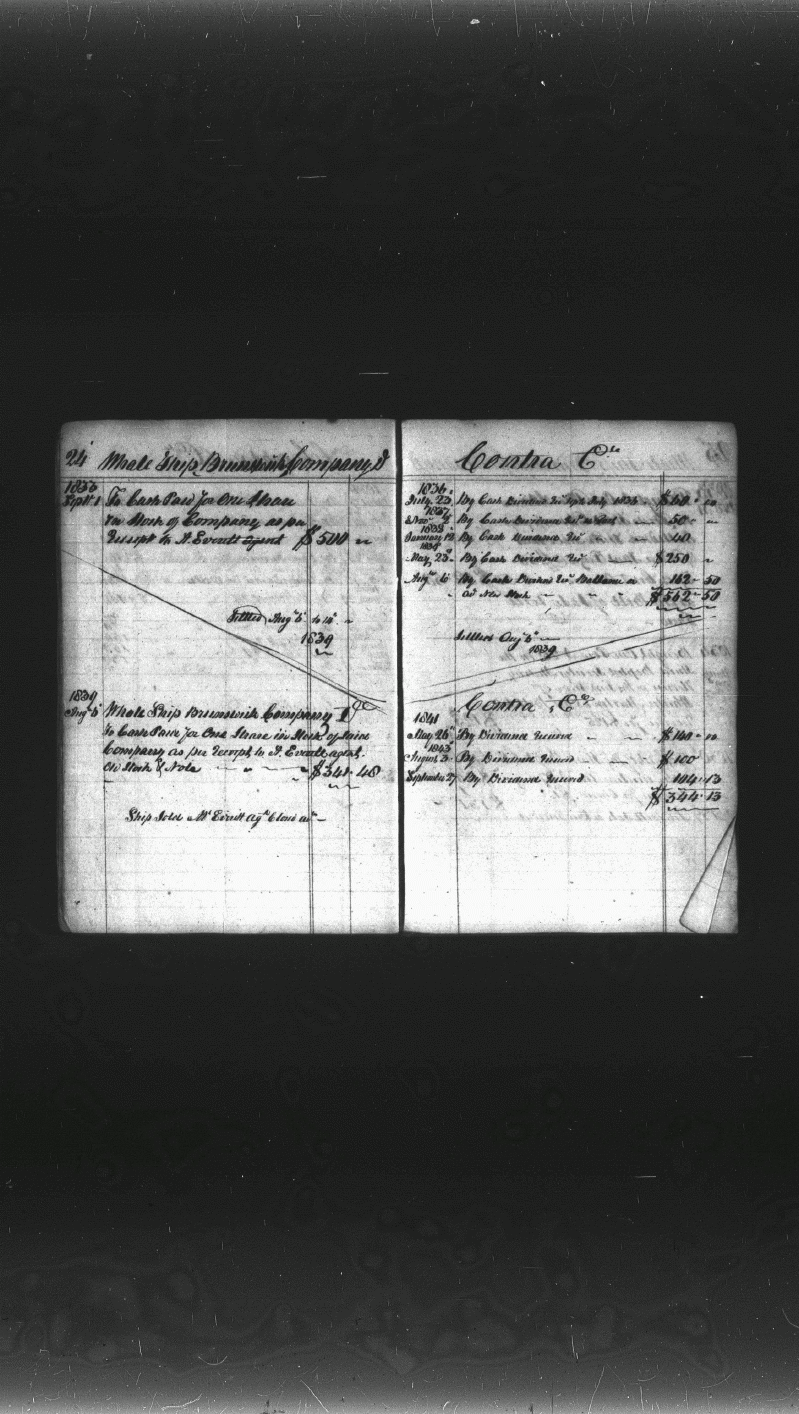 24 Whale Ship Brunswick Company D
1836
Sept 1 To Cash Paid for One Share
in Stock of Company as per
Receipt to A. Everett agent $500 "
Settled Aug 6
1839
1839
Aug 6 Whale Ship Brunswick Company
To Cash Paid for One Share in Stock of Said
Company as per Receipt to A. Everett agent.
$341.48
Ship Sold Everett
Contra Cr
1836
July 23 By Cash Dividend $60
1837
Nov By Cash Dividend 50
1838
January By Cash Dividend 40
May 23 By Cash Dividend $250
Aug 6 By Cash 162 50
$562 50
Settled Aug 6
1839
Contra Cr
1841
May 26 By Dividend $140
1843
August By Dividend $100
September 27 By Dividend 104.13
$344.13